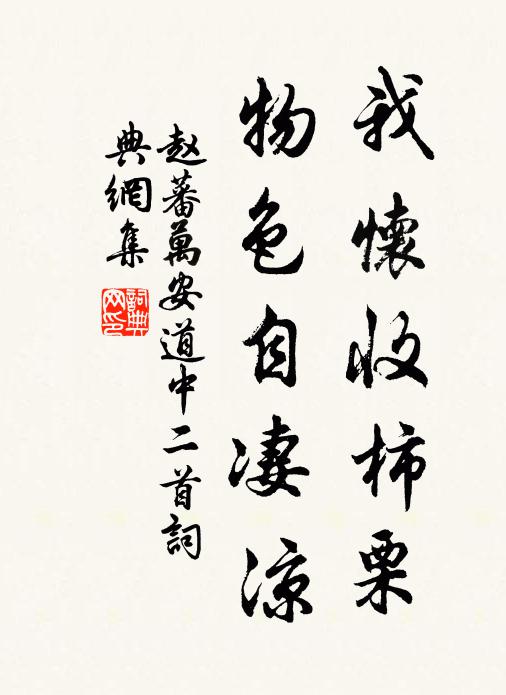 我懷收柿栗
物色自凄涼
赵蕃萬安道中二首詞
典網集
詞典網印